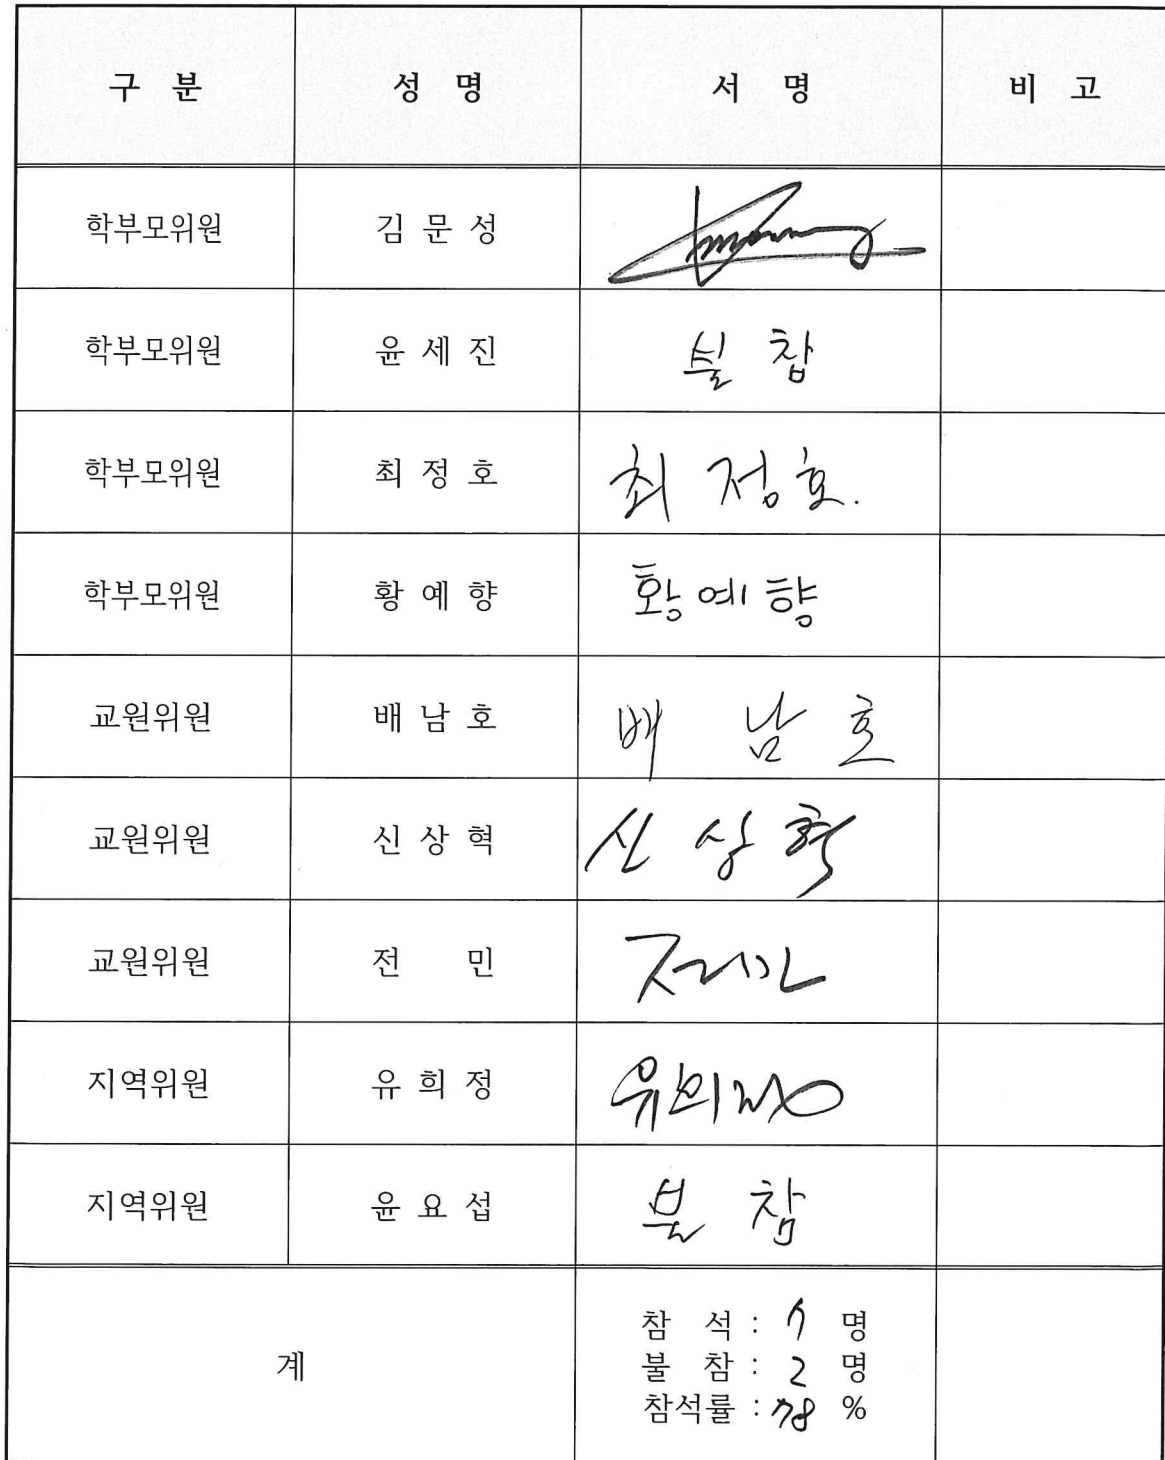 구 분 성 명 서 명 비 고
학부모위원 김 문 성
학부모위원 윤 세 진 불 참
학부모위원 최 정 호 최 정 호.
학부모위원 황 예 향 황 예 향
교원위원 배 남 호 배 남 호
교원위원 신 상 혁 신 상 혁
교원위원 전 민 전민
지역위원 유 희 정 유희정
지역위원 윤 요 섭 불 참
계 참 석 : 7 명
불 참 : 2 명
참석률 : 78 %